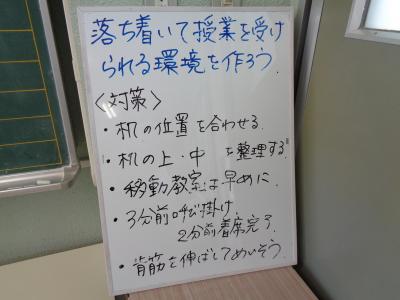 落ち着いて授業を受け
られる環境を作ろう
〈対策〉
・机の位置を合わせる
・机の上・中を整理する
・移動教室は早めに
・3分前呼び掛け
2分前着席完了
・背筋を伸ばしてめいそう